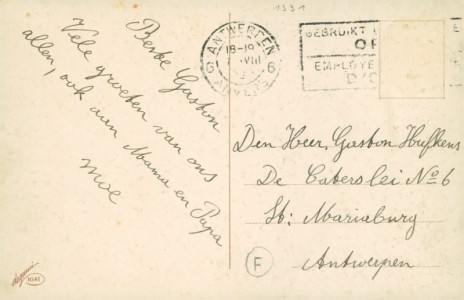 1931
ANTWERPEN
18-19
VIII
6 6
ANVERS
GEBRUIKT
EMPLOYE
Beste Gaston
Vele groeten van ons
allen, ook aan Mama en Papa
Moe
Den Heer, Gaston Hufkens
De Caterslei No 6
St: Mariaburg
Antwerpen
F
1041